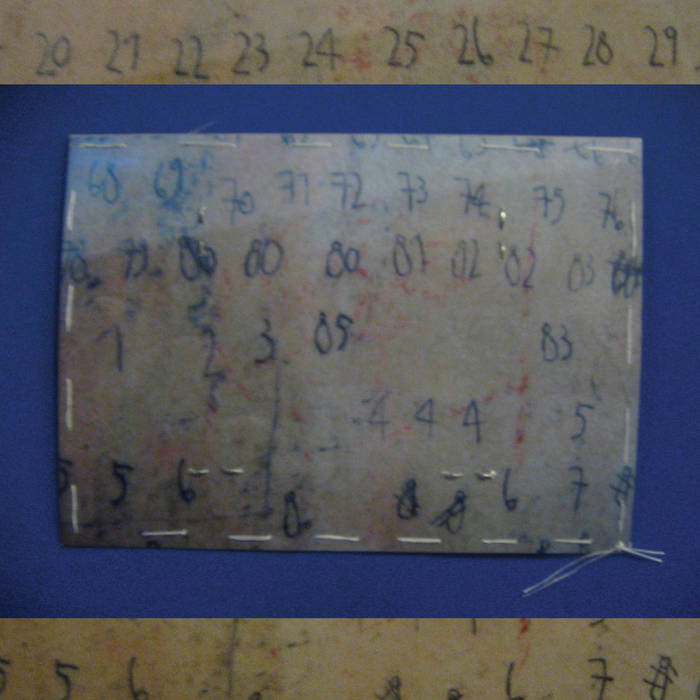 20 21 22 23 24 25 26 27 28 29
68 69 70 71 72 73 74 75 76
79 80 80 80 81 82 82 83
1 2 3 85 83
4 4 4 5
5 5 6 8 8 8 6 7
5 5 6 6 7